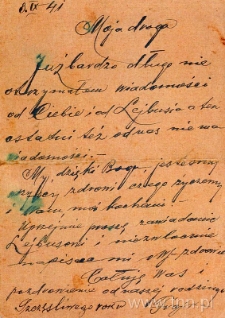 8.IX 41
Moja droga
Już bardzo długo nie
otrzymałam wiadomości
od Ciebie i od Lejbusia a ten
ostatni też od nas nie ma
wiadomości.
My dzięki Bogu jesteśmy
wszyscy zdrowi czego życzemy
i Wam, moi kochani
Uprzejmie proszę zawiadomić
Lejbusia i niezwłocznie
napisać mi o Wym zdrowiu
Całuję Was i
pozdrowienie od naszej rodziny
Szczęśliwego roku